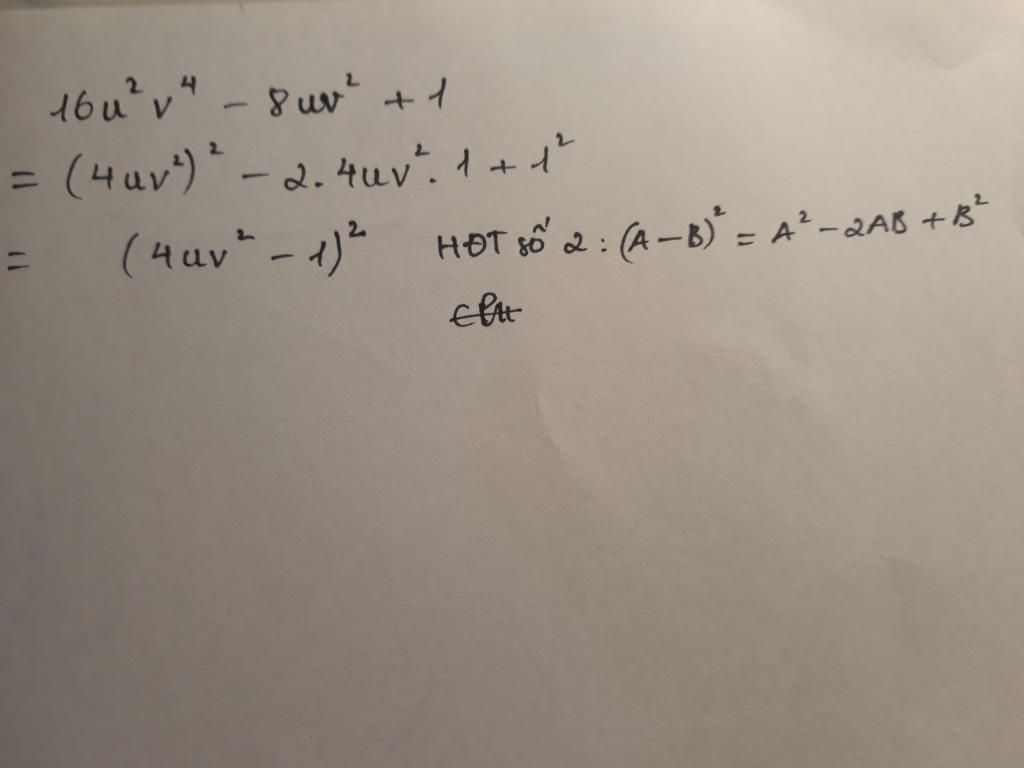 16u²v⁴ - 8uv² + 1
= (4uv²)² - 2.4uv².1 + 1²
= (4uv² - 1)² HĐT số 2 : (A - B)² = A² - 2AB + B²